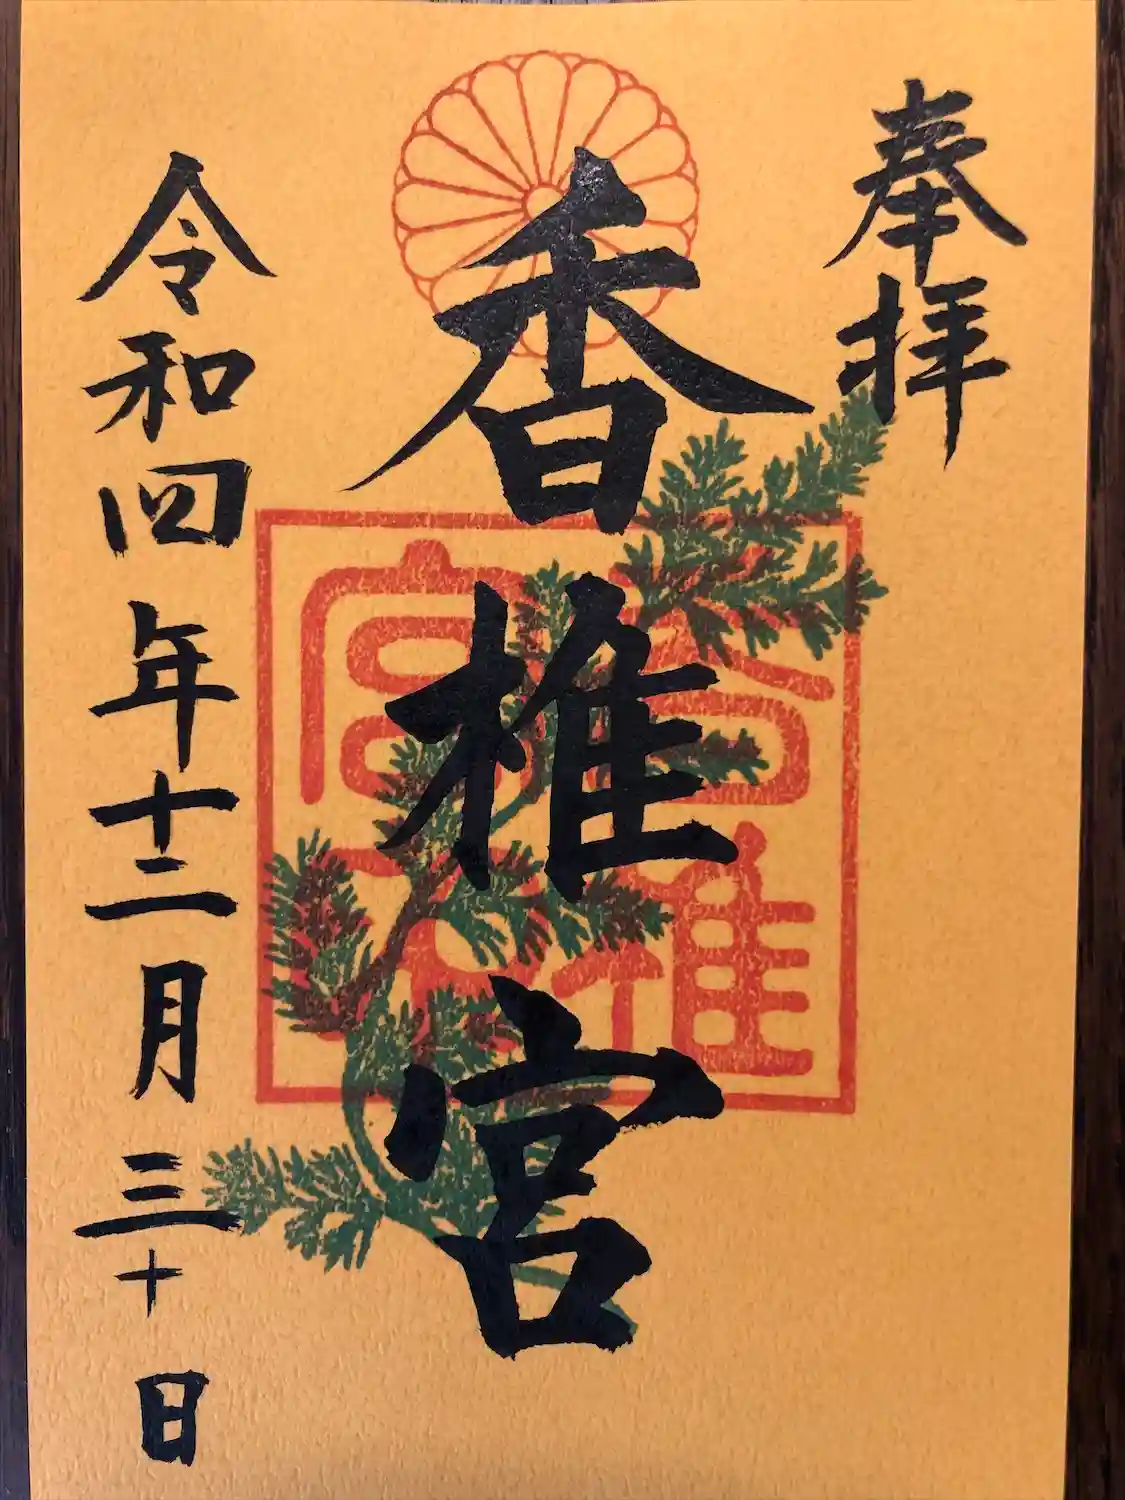 奉拝
香椎宮
香椎宮
令和四年十二月三十日